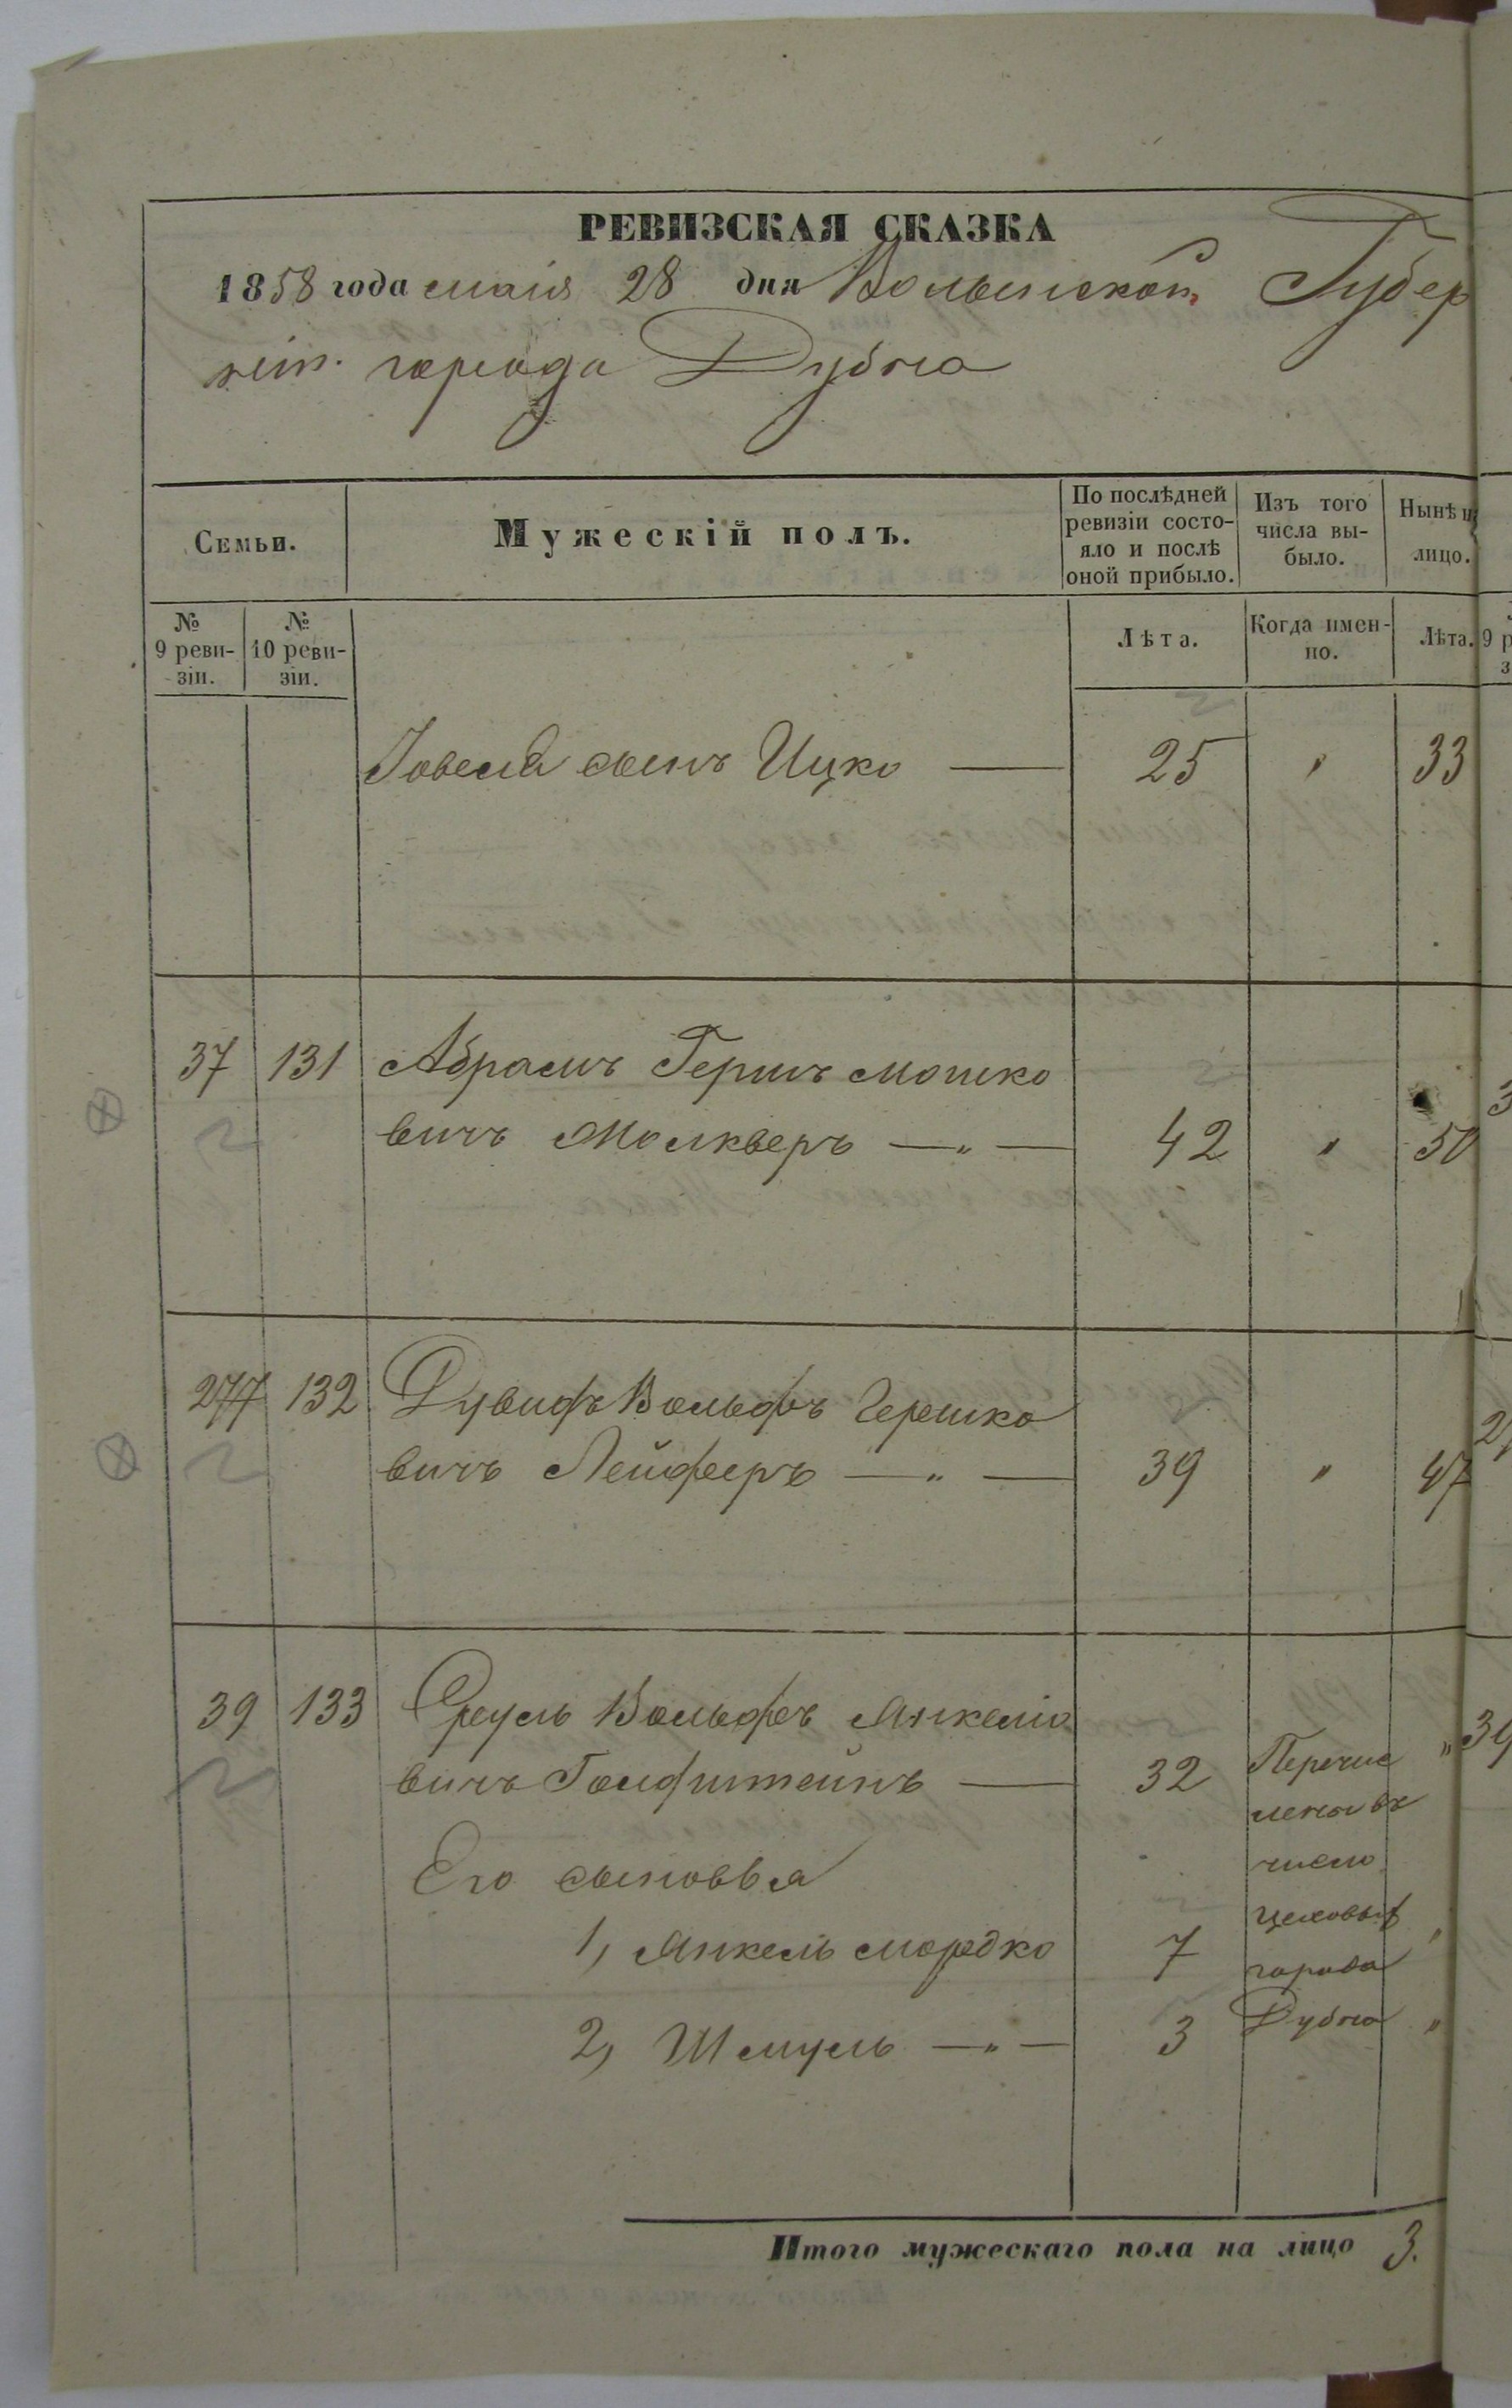 РЕВИЗСКАЯ СКАЗКА
1858 года маія 28 дня Волынской Губер
ніи. города Дубна
Семьи.
Мужескій полъ.
По послѣдней ревизіи состо-
яло и послѣ
оной прибыло.
Изъ того
числа вы-
было.
Нынѣ н
лицо.
№
9 реви-
зіи.
№
10 реви-
зіи.
Лѣта.
Когда имен-
но.
Лѣта.
Іовеля сынъ Ицко — 25 " 33
37 131 Абрамъ Гершъ Мошко
вичъ Маскверъ — " — 42 " 50
277 132 Дувидъ Вольфъ Гершко
вичъ Лейферъ — " — 39 " 47
39 133 Сруль Вольфъ Анкеліо
вичъ Голфштейнъ — 32 "
Перечис
лены въ
число
цеховых
города
Дубна
Его сыновья
1, Анкель мордко 7 "
2, Шмуль — " — 3 "
Итого мужескаго пола на лицо 3.